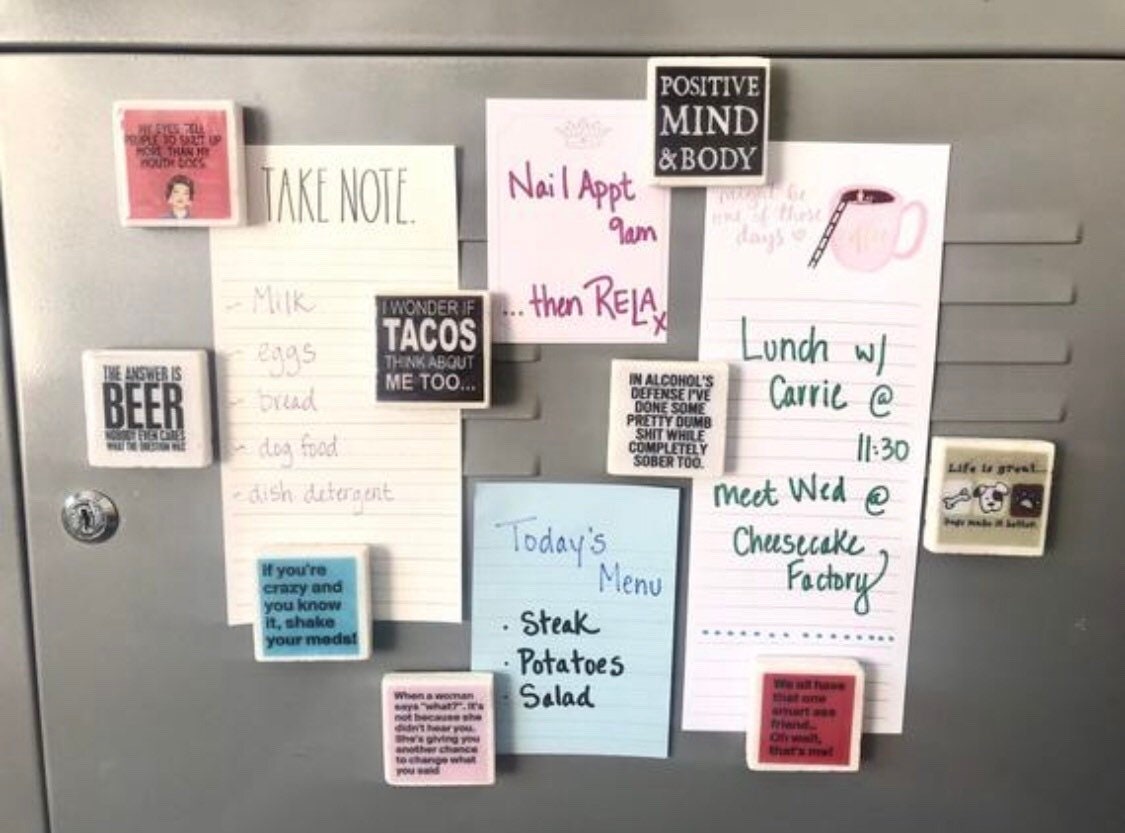 MY EYES TELL
PEOPLE TO SHUT UP
MORE THAN MY
MOUTH DOES.
TAKE NOTE.
- Milk
- eggs
- bread
- dog food
- dish detergent
I WONDER IF
TACOS
THINK ABOUT
ME TOO...
THE ANSWER IS
BEER
NOBODY EVEN CARES
WHAT THE QUESTION WAS
If you're
crazy and
you know
it, shake
your meds!
Nail Appt
9am
... then RELAx
POSITIVE
MIND
& BODY
might be
one of those
days
coffee
Lunch w/
Carrie @
11:30
meet Wed @
Cheesecake
Factory
IN ALCOHOL'S
DEFENSE I'VE
DONE SOME
PRETTY DUMB
SHIT WHILE
COMPLETELY
SOBER TOO.
Life is great...
Dogs make it better.
Today's
Menu
· Steak
· Potatoes
· Salad
When a woman
says "what?". It's
not because she
didn't hear you.
She's giving you
another chance
to change what
you said
We all have
that one
smart ass
friend..
Oh wait,
that's me!